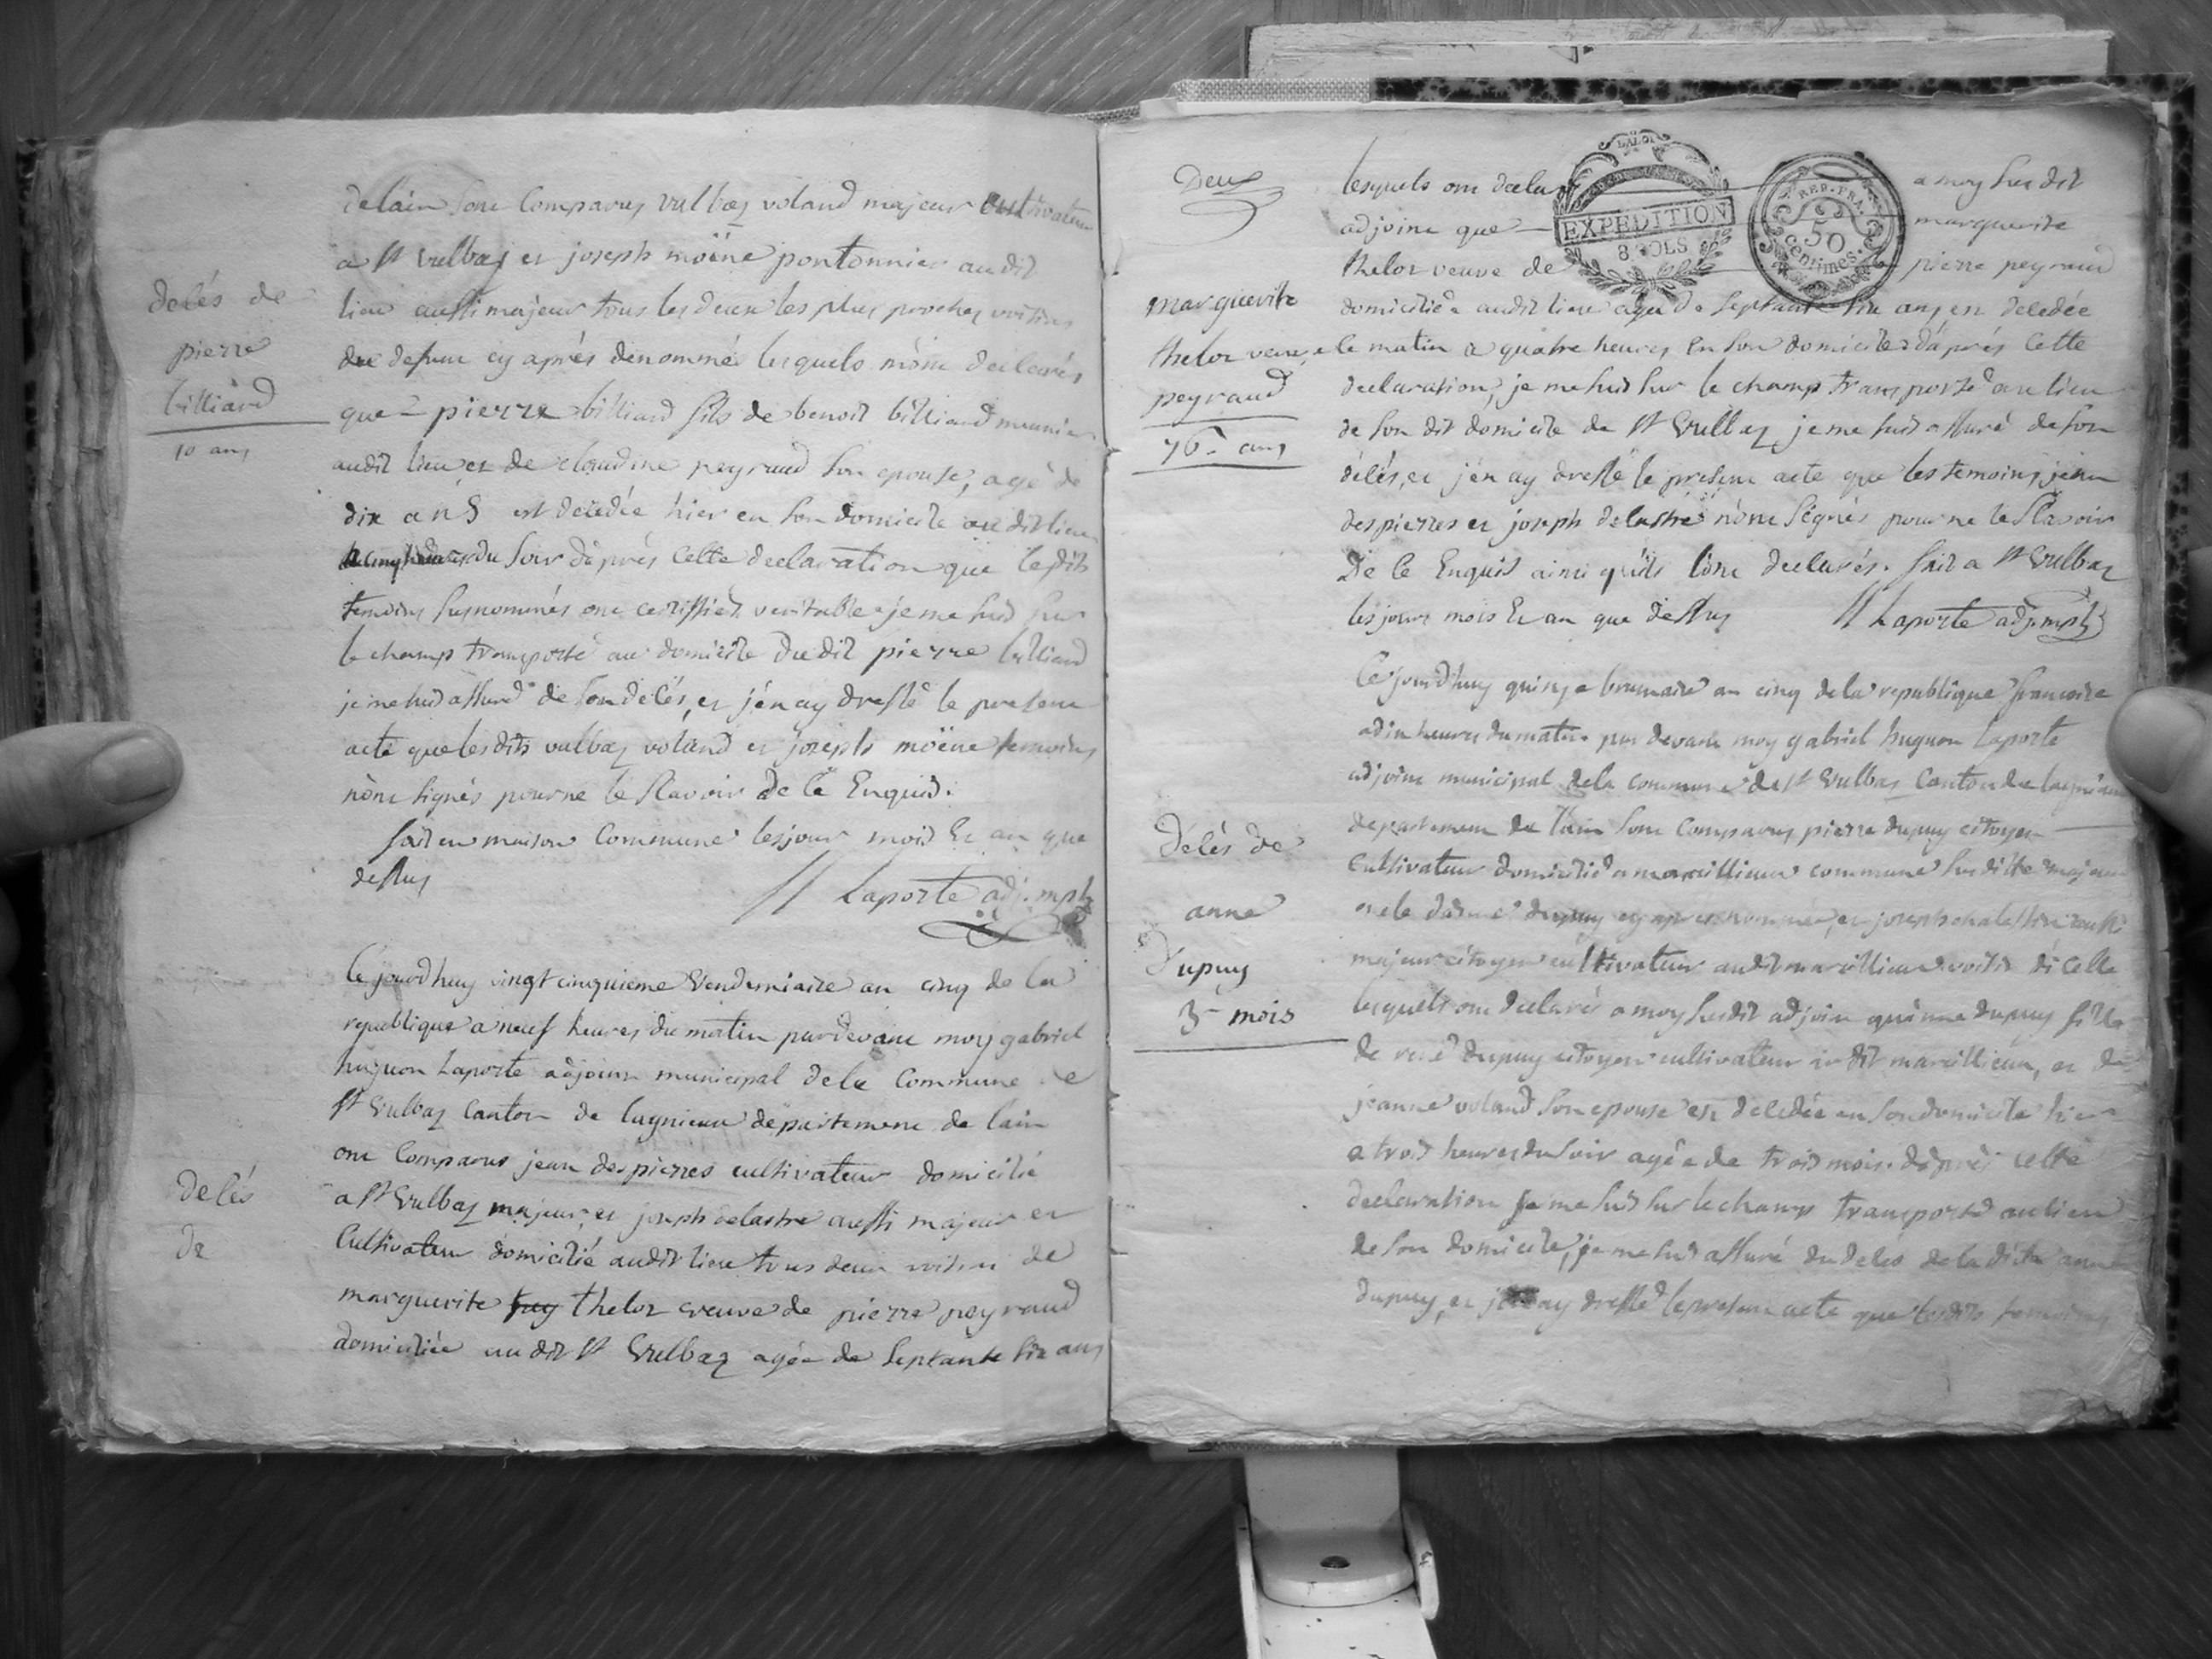 delain sont comparus vulbas voland majeur cultivateur
a st vulbas et joseph moëne pontonnier audit
lieu aussi majeur tous les deux les plus proches voisins
decés de
pierre
billiard
10 ans
du defunt cy après dénommé lesquels m'ont declarés
que pierre billiard fils de benoit billiard meunier
audit lieu et de claudine peyraud son epouse, agé de
dix ans est décédée hier en son domicile au dit lieu
du soir d'après cette declaration que lesdits
temoins susnommés ont certiffiéz veritable je me suis sur
le champ transporté au domicile du dit pierre billiard
je me suis assuré de son décés, et j'en ay dressé le present
acte que lesdits vulbas voland et joseph moëne temoins
n'ont signés pour ne le sçavoir de ce Enquis.
fait en maison commune les jour mois Et an que
dessus
Laporte adj. mpl
Ce jourdhuy vingt cinquieme vendemiaire an cinq de la
republique a neuf heures du matin pardevant moy gabriel
huguon Laporte adjoint municipal dela Commune de
st vulbas Canton de lagnieux département de lain
ont Comparus jean despierres cultivateur domicilié
decés
de
a st vulbas majeur, et joseph delastre aussi majeur et
Cultivateur domicilié audit lieu tous deux voisins de
marguerite thelor veuve de pierre peyraud
domiciliée au dit st vulbas agée de septante six ans
Deux
lesquels ont declaré a moy susdit
adjoint que marguerite
thelor veuve de pierre peyraud
LA LOI
EXPEDITION
8 SOLS
REP. FRA.
50
centimes.
marguerite
thelor veuve
peyraud
76 ans
domiciliée audit lieu agée de septante six ans est décédée
le matin a quatre heures en son domicile d'après cette
declaration, je me suis sur le champ transporté au lieu
de son dit domicile de st vulbas je me suis assuré de son
décés, et j'en ay dressé le present acte que les temoins jean
despierres et joseph delastre n'ont signés pour ne le sçavoir
De ce Enquis ainsi qu'ils l'ont declarés. fait a st vulbas
les jours mois Et an que dessus Laporte adj. mpl
Ce jourdhuy quinze brumaire an cinq dela republique francoise
a dix heures du matin par devant moy gabriel huguon Laporte
adjoint municipal dela commune de st vulbas Canton de lagnieux
departement de lain sont Comparus pierre dupuy citoyen
decés de
anne
Dupuy
3 mois
Cultivateur domicilié a marcillieux commune susditte majeur
oncle d'anne dupuy cy après nommée, et joseph aussi
majeur citoyen cultivateur audit marcillieux voisin d'icelle
lesquels ont declaré a moy susdit adjoint qu'anne dupuy fille
de rené dupuy citoyen cultivateur audit marcillieux, et de
jeanne voland son epouse est décédée en son domicile hier
a trois heures du soir agée de trois mois. d'après cette
declaration je me suis sur le champ transporté au lieu
de son domicile, je me suis assuré du déces de la ditte anne
dupuy, et j'en ay dressé le present acte que lesdits temoins